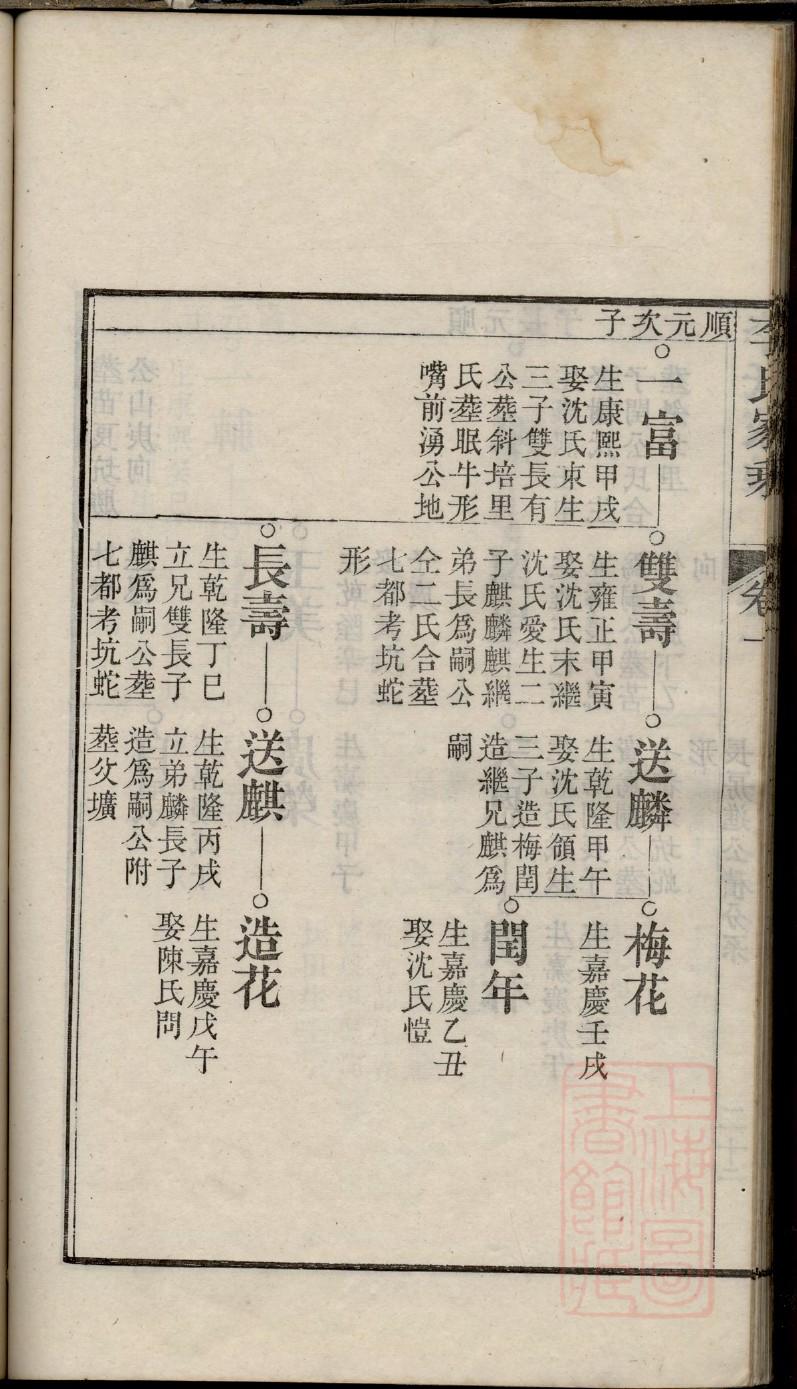 李氏家乘
卷一
順元次子
一富
生康熙甲戌
娶沈氏東生
三子雙長有
公塟斜培里
氏塟眠牛形
嘴前湧公地
雙壽
生雍正甲寅
娶沈氏末繼
沈氏愛生二
子麒麟麒繼
弟長爲嗣公
仝二氏合塟
七都考坑蛇
形
送麟
生乾隆甲午
娶沈氏領生
三子造梅閏
造繼兄麒爲
嗣
梅花
生嘉慶壬戌
閏年
生嘉慶乙丑
娶沈氏愷
長壽
生乾隆丁巳
立兄雙長子
麒爲嗣公塟
七都考坑蛇
送麒
生乾隆丙戌
立弟麟長子
造爲嗣公附
塟父壙
造花
生嘉慶戊午
娶陳氏問
上海圖書館藏